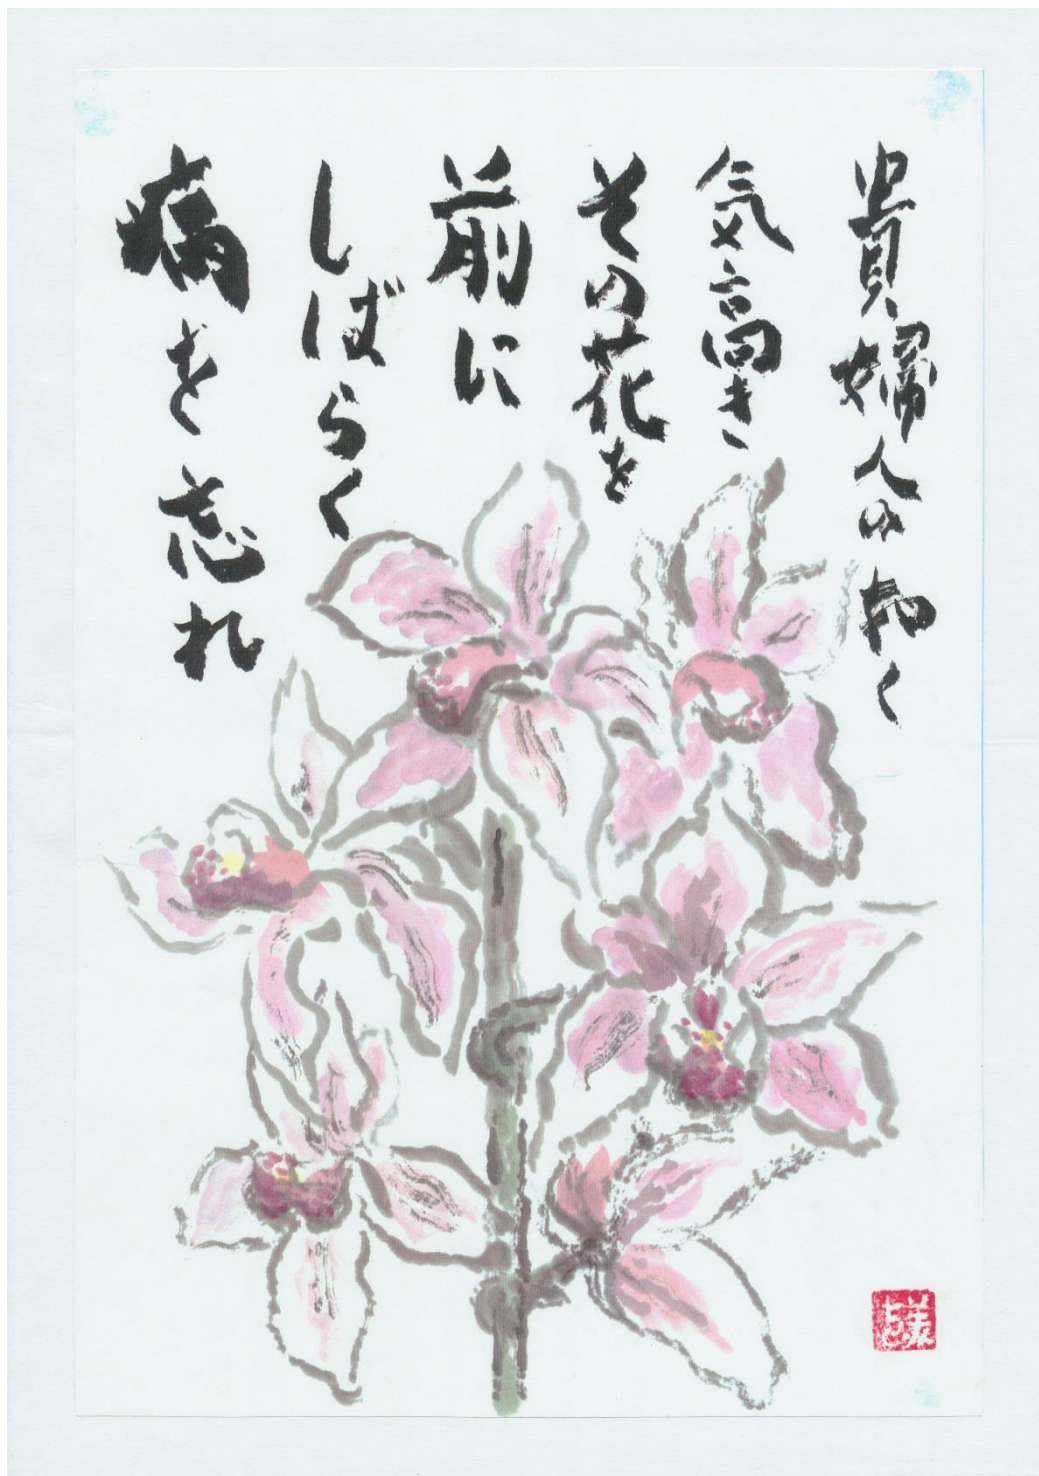 貴婦人の如く
気高き
その花を
前に
しばらく
病を忘れ